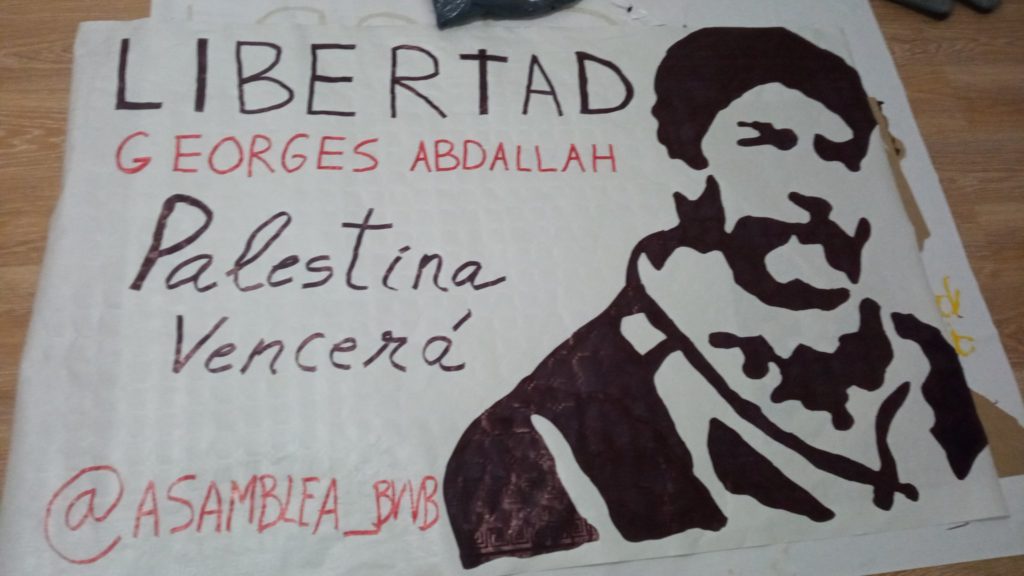 LIBERTAD
GEORGES ABDALLAH
Palestina
Vencerá
@ASAMBLEA_BWB